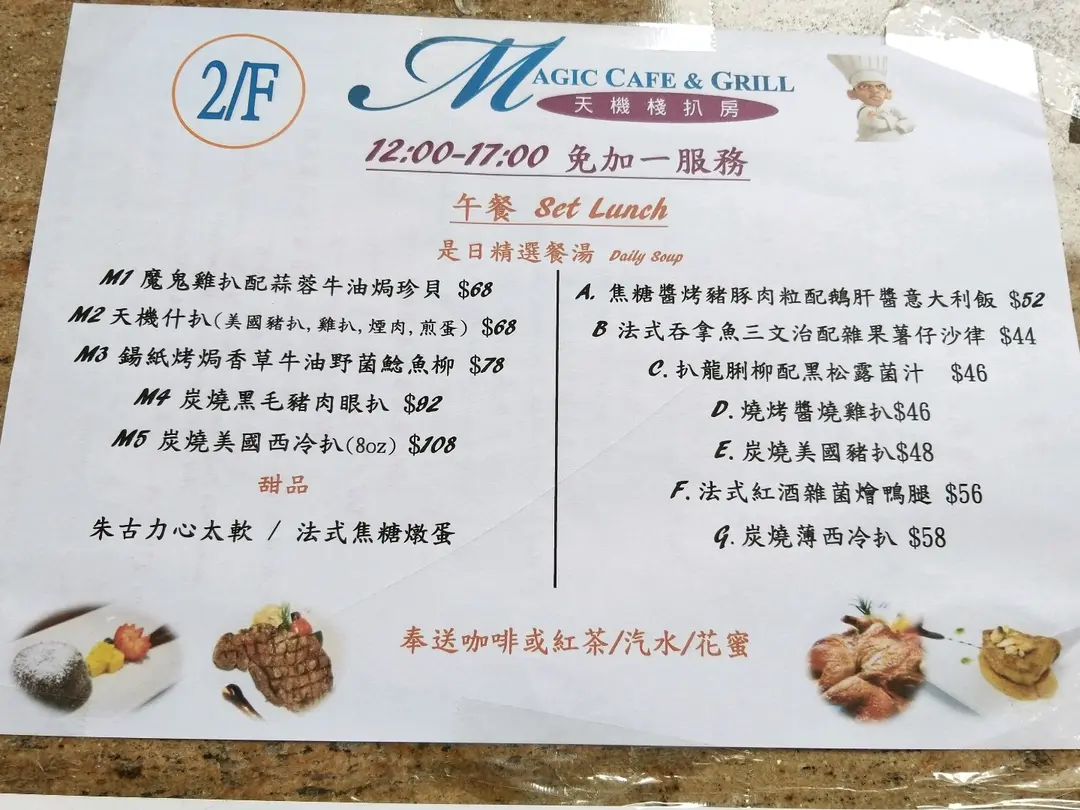 2/F
MAGIC CAFE & GRILL
天機棧扒房
12:00-17:00 免加一服務
午餐 Set Lunch
是日精選餐湯 Daily Soup
M1 魔鬼雞扒配蒜蓉牛油焗珍貝 $68
M2 天機什扒(美國豬扒,雞扒,煙肉,煎蛋) $68
M3 錫紙烤焗香草牛油野菌鯰魚柳 $78
M4 炭燒黑毛豬肉眼扒 $92
M5 炭燒美國西冷扒(8oz) $108
甜品
朱古力心太軟 / 法式焦糖燉蛋
A. 焦糖醬烤豬豚肉粒配鵝肝醬意大利飯 $52
B 法式吞拿魚三文治配雜果薯仔沙律 $44
C. 扒龍脷柳配黑松露菌汁 $46
D. 燒烤醬燒雞扒$46
E. 炭燒美國豬扒$48
F. 法式紅酒雜菌燴鴨腿 $56
G. 炭燒薄西冷扒 $58
奉送咖啡或紅茶/汽水/花蜜